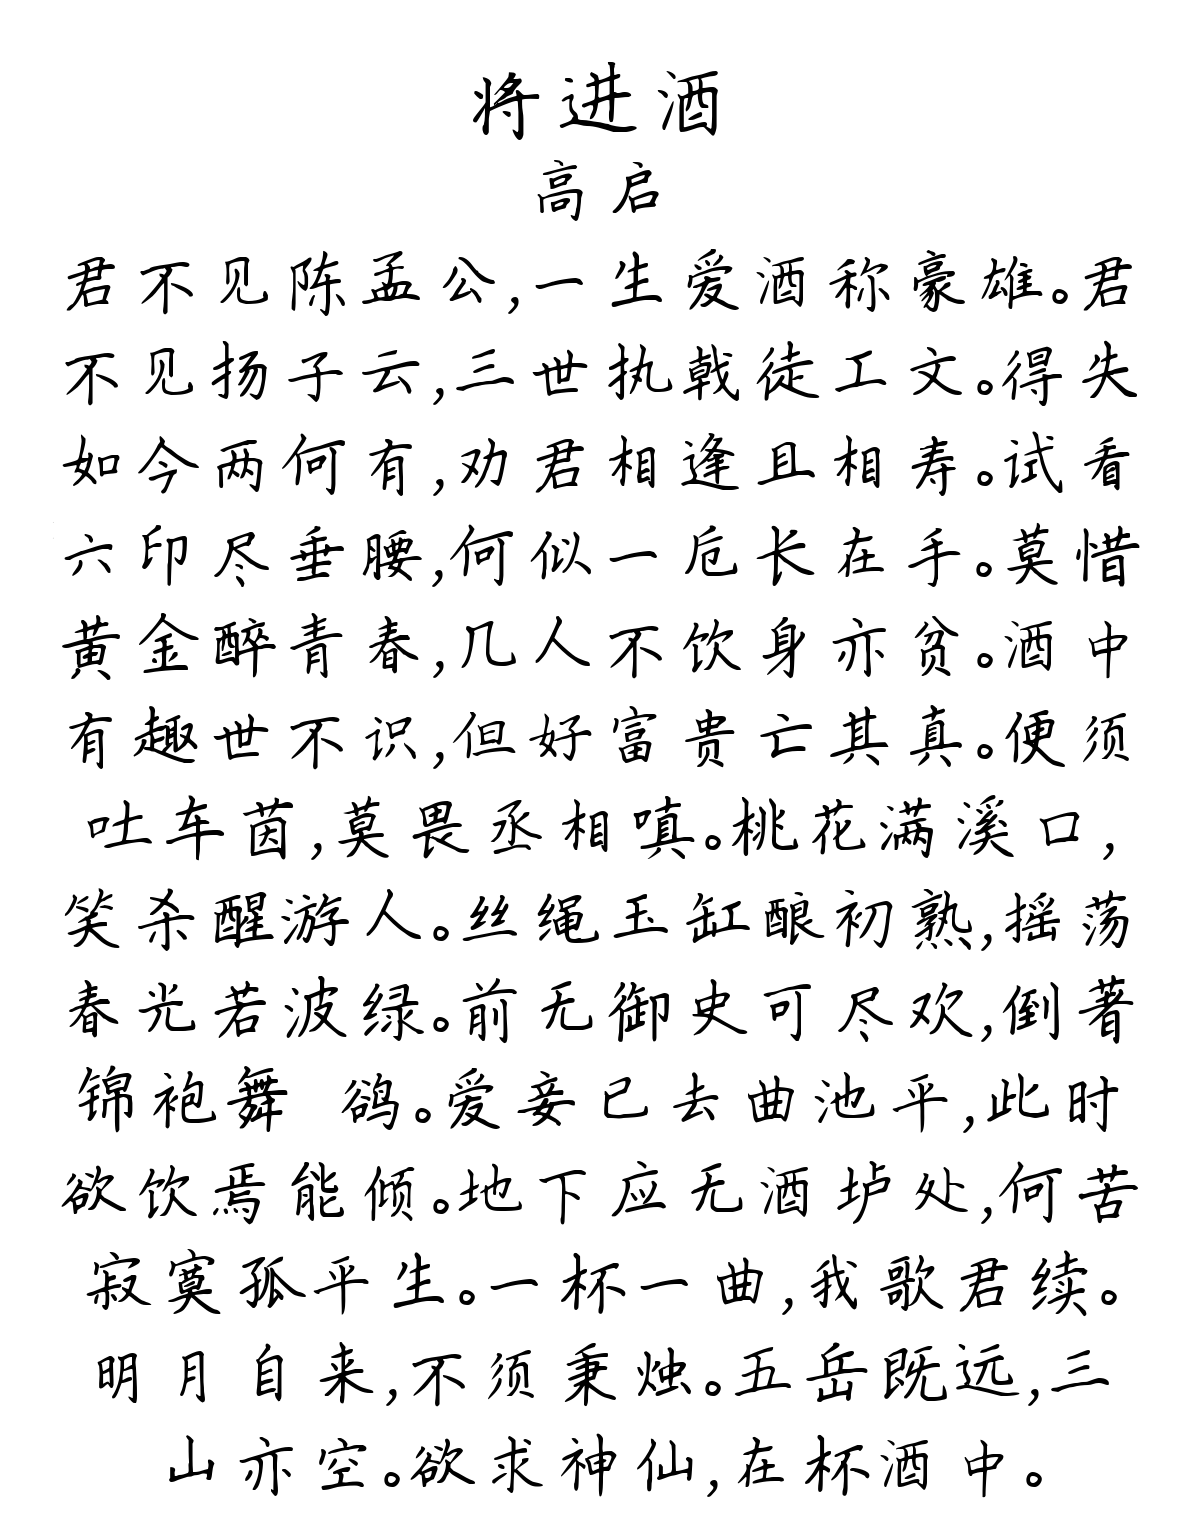 将进酒
高启
君不见陈孟公,一生爱酒称豪雄。君
不见扬子云,三世执戟徒工文。得失
如今两何有,劝君相逢且相寿。试看
六印尽垂腰,何似一卮长在手。莫惜
黄金醉青春,几人不饮身亦贫。酒中
有趣世不识,但好富贵亡其真。便须
吐车茵,莫畏丞相嗔。桃花满溪口,
笑杀醒游人。丝绳玉缸酿初熟,摇荡
春光若波绿。前无御史可尽欢,倒著
锦袍舞 鹆。爱妾已去曲池平,此时
欲饮焉能倾。地下应无酒垆处,何苦
寂寞孤平生。一杯一曲,我歌君续。
明月自来,不须秉烛。五岳既远,三
山亦空。欲求神仙,在杯酒中。